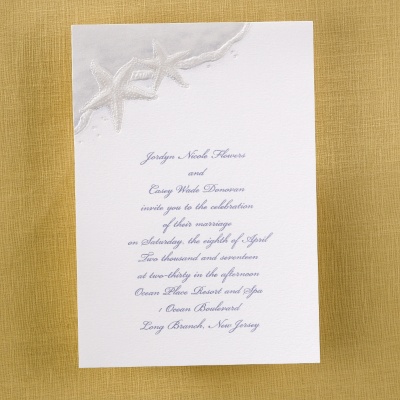 Jordyn Nicole Flowers
and
Casey Wade Donovan
invite you to the celebration
of their marriage
on Saturday, the eighth of April
Two thousand and seventeen
at two-thirty in the afternoon
Ocean Place Resort and Spa
1 Ocean Boulevard
Long Branch, New Jersey